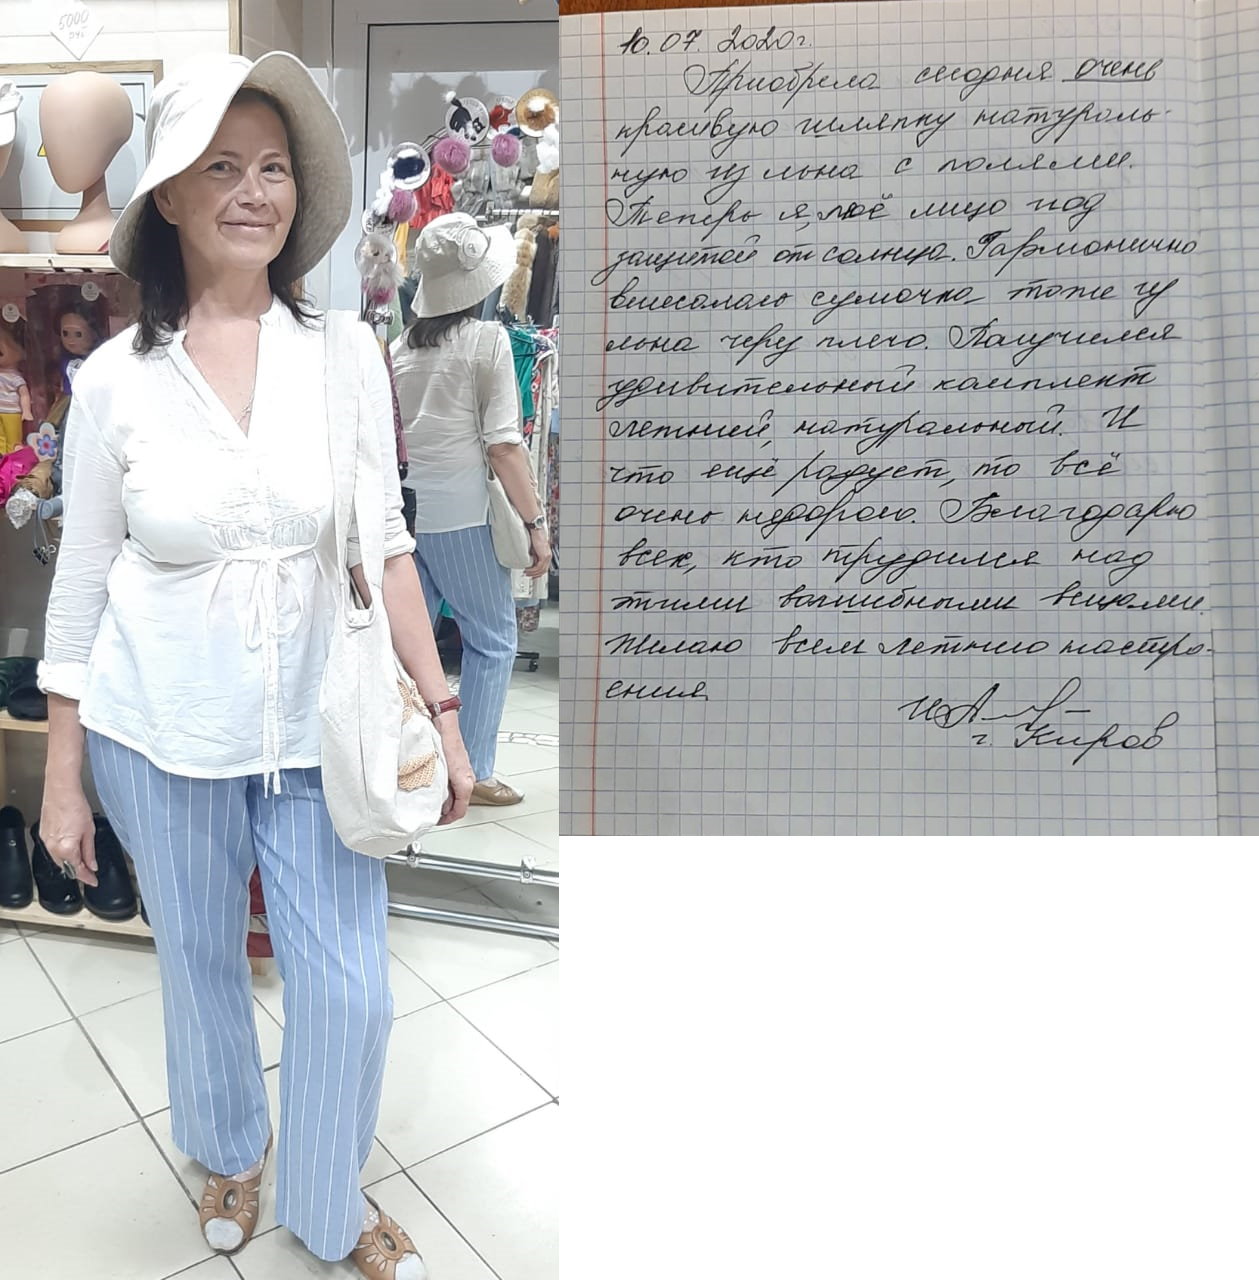 5000
руб
10.07.2020г.
Приобрела сегодня очень
красивую шляпку натураль-
ную из льна с полями.
Теперь я, моё лицо под
защитой от солнца. Гармонично
вписалась сумочка тоже из
льна через плечо. Получился
удивительный комплект
летний, натуральный. И
что ещё радует, то всё
очень недорого. Благодарю
всех, кто трудился над
этими волшебными вещами.
Желаю всем летнего настро-
ения
г. Киров